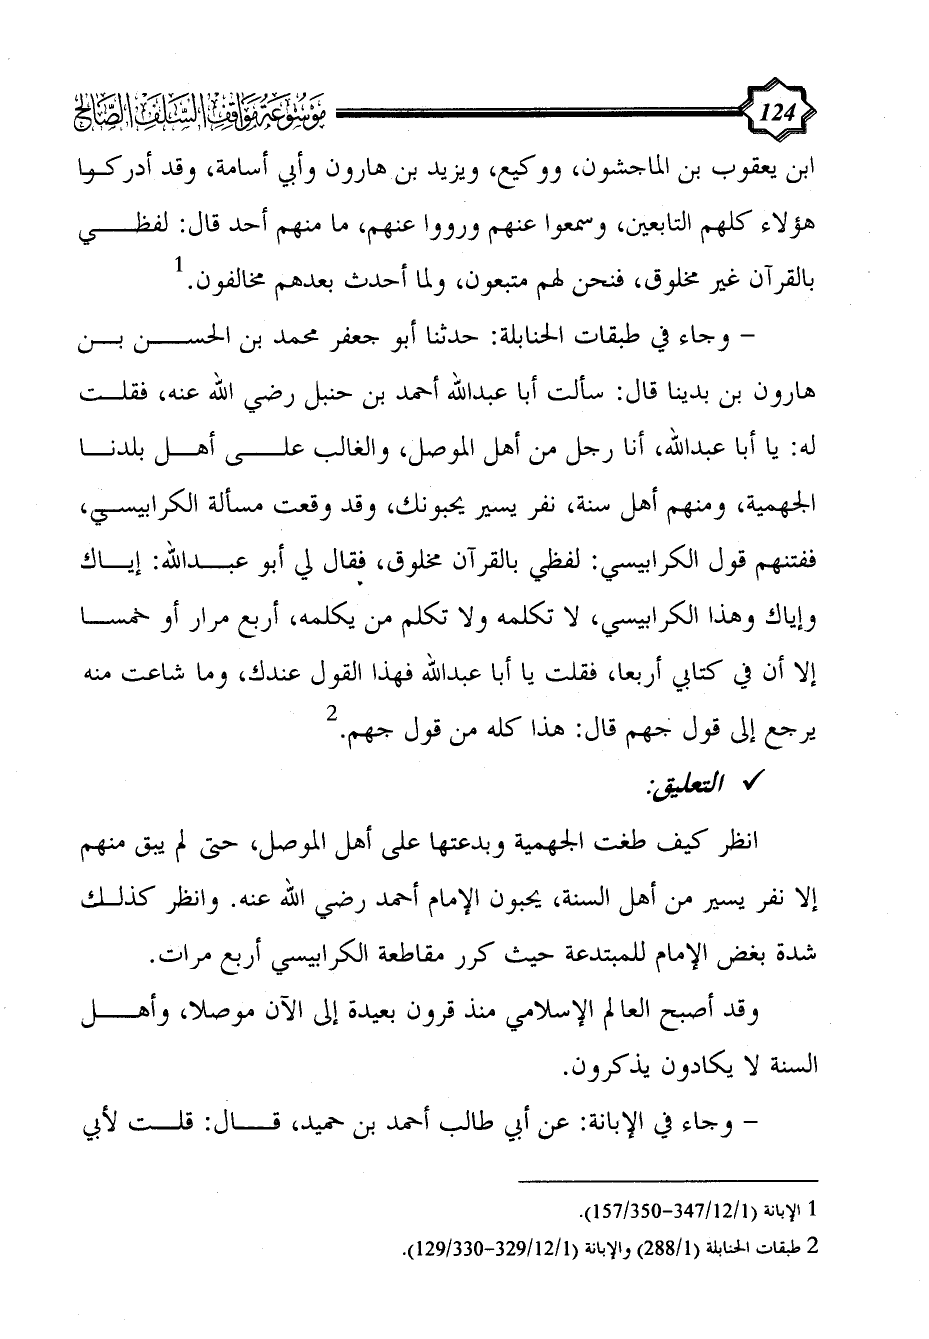 124
موسوعة مواقف السلف الصالح
ابن يعقوب بن الماجشون، ووكيع، ويزيد بن هارون وأبي أسامة، وقد أدركوا
هؤلاء كلهم التابعين، وسمعوا عنهم ورووا عنهم، ما منهم أحد قال: لفظي
بالقرآن غير مخلوق، فنحن لهم متبعون، ولما أحدث بعدهم مخالفون.1
– وجاء في طبقات الحنابلة: حدثنا أبو جعفر محمد بن الحسن بن
هارون بن بدينا قال: سألت أبا عبدالله أحمد بن حنبل رضي الله عنه، فقلت
له: يا أبا عبدالله، أنا رجل من أهل الموصل، والغالب على أهل بلدنا
الجهمية، ومنهم أهل سنة، نفر يسير يحبونك، وقد وقعت مسألة الكرابيسي،
ففتنهم قول الكرابيسي: لفظي بالقرآن مخلوق، فقال لي أبو عبدالله: إياك
وإياك وهذا الكرابيسي، لا تكلمه ولا تكلم من يكلمه، أربع مرار أو خمسا
إلا أن في كتابي أربعا، فقلت يا أبا عبدالله فهذا القول عندك، وما شاعت منه
يرجع إلى قول جهم قال: هذا كله من قول جهم.2
✓ التعليق:
انظر كيف طغت الجهمية وبدعتها على أهل الموصل، حتى لم يبق منهم
إلا نفر يسير من أهل السنة، يحبون الإمام أحمد رضي الله عنه. وانظر كذلك
شدة بغض الإمام للمبتدعة حيث كرر مقاطعة الكرابيسي أربع مرات.
وقد أصبح العالم الإسلامي منذ قرون بعيدة إلى الآن موصلا، وأهل
السنة لا يكادون يذكرون.
– وجاء في الإبانة: عن أبي طالب أحمد بن حميد، قال: قلت لأبي
1 الإبانة (1/12/347-350/157).
2 طبقات الحنابلة (1/288) والإبانة (1/12/329-330/129).